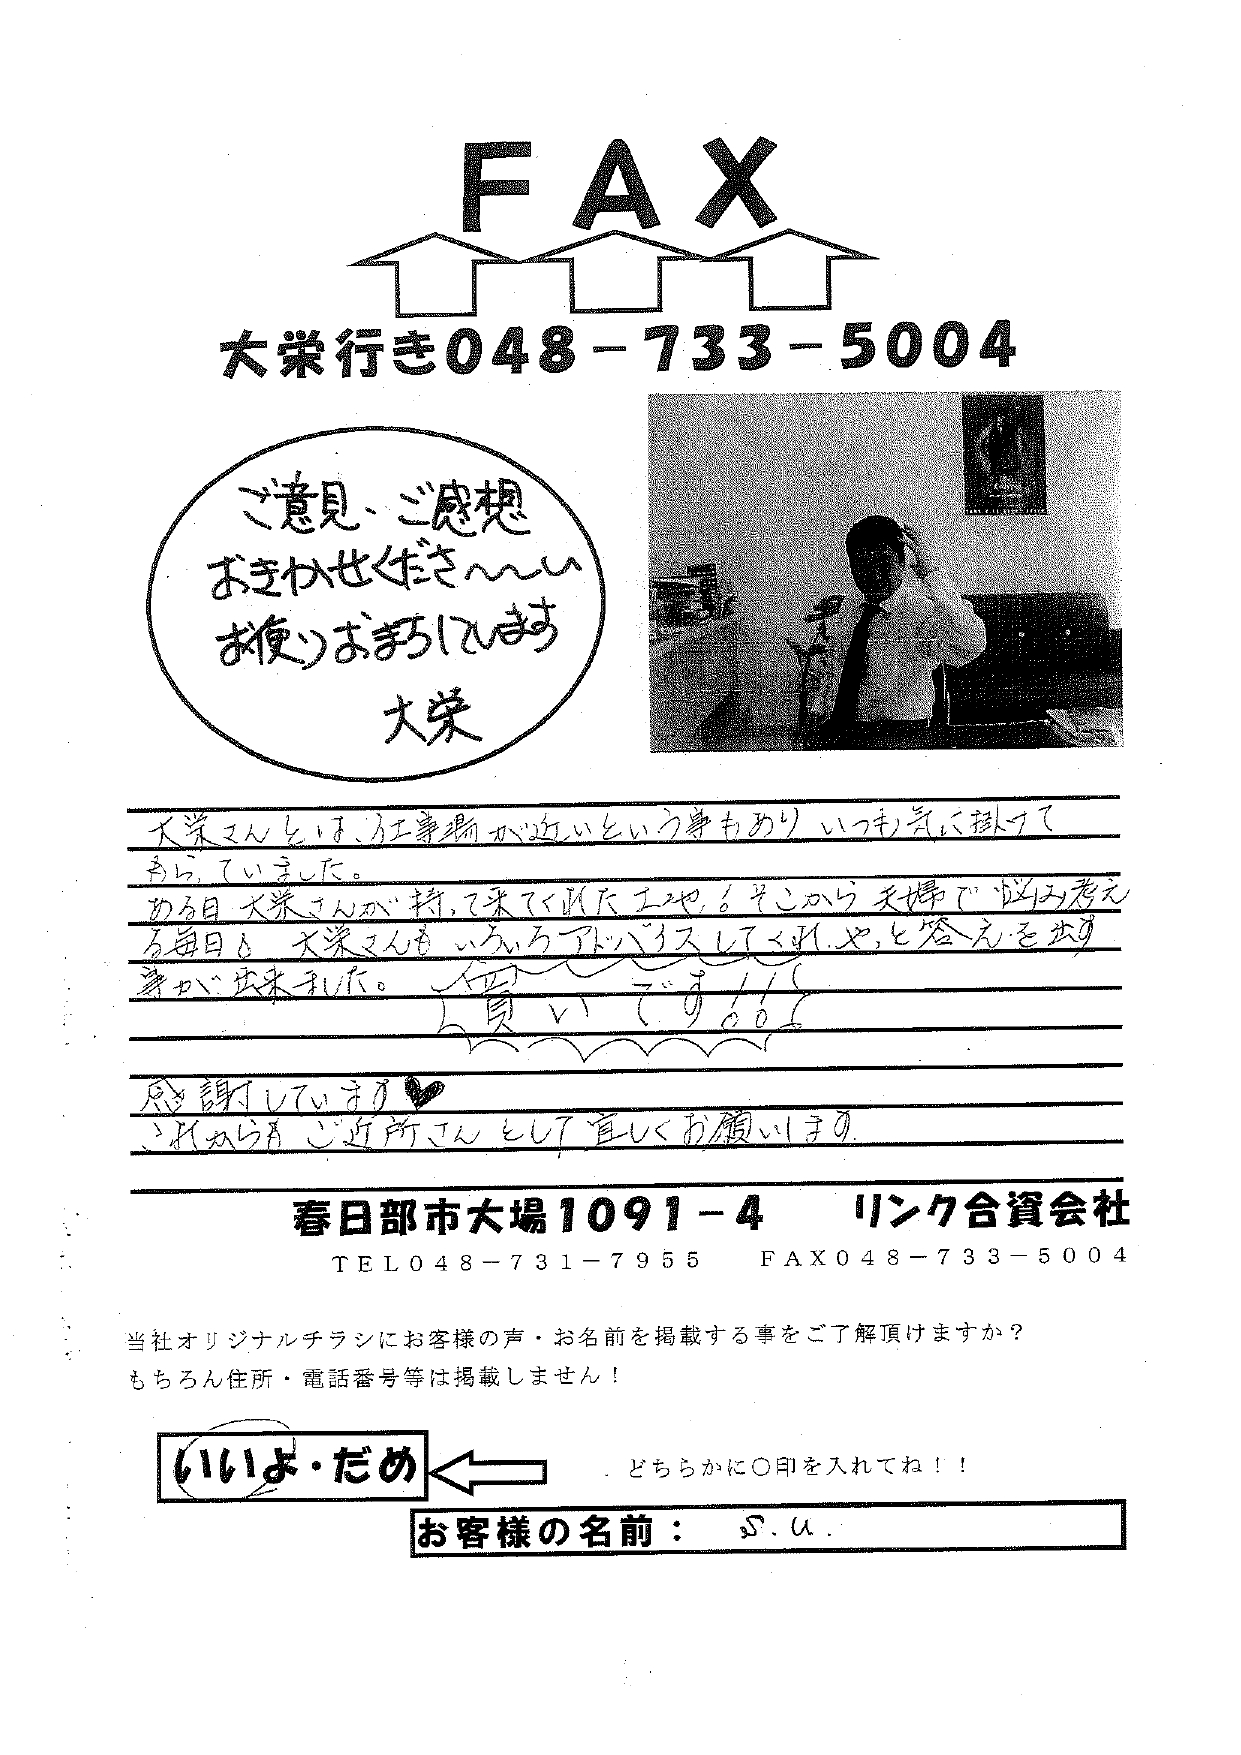 FAX
大栄行き048-733-5004
ご意見、ご感想
おきかせくださ〜〜い
お便りおまちしています
大栄
大栄さんとは、仕事場が近いという事もあり いつも気に掛けて
もらっていました。
ある日 大栄さんが 持って来てくれた エコや！そこから 夫婦で 悩み考え
る毎日 大栄さんも いろいろアドバイスしてくれ、やっと答えを出す
事が 出来ました。
買いです!!
感謝しています♥
これからも ご近所さん として 宜しくお願いします
春日部市大場1091-4 リンク合資会社
TEL048-731-7955 FAX048-733-5004
当社オリジナルチラシにお客様の声・お名前を掲載する事をご了解頂けますか？
もちろん住所・電話番号等は掲載しません！
いいよ・だめ
どちらかに〇印を入れてね！！
お客様の名前： S.U.